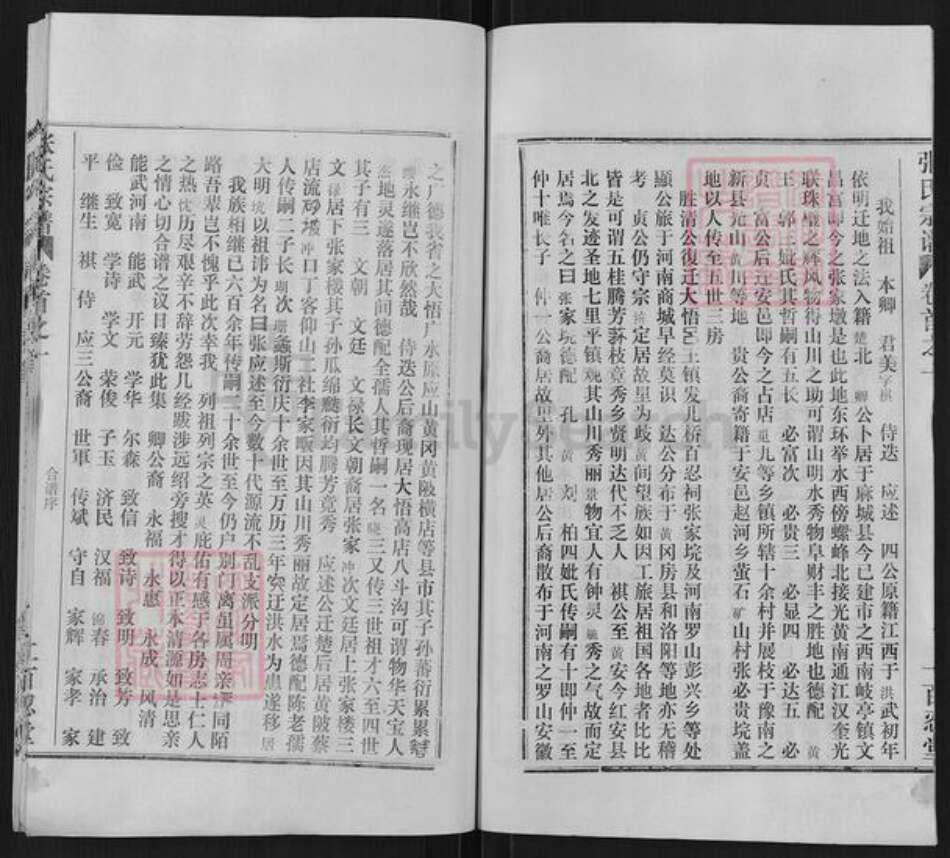 张氏宗谱 卷首之一
百忍堂
我始祖 本卿 君美字横 侍迭 应述 四公原籍江西于洪武初年
依明迁地之法入籍楚北 卿公卜居于麻城县今已建市之西南岐亭镇文
昌宫即今之张家墩是也此地东环举水西傍螺峰北接光黄南通江汉奎光
联珠璧之辉风物得山川之助可谓山明水秀物阜财丰之胜地也德配 黄
王 郭三妣氏其哲嗣有五长 必富次 必贵三 必显四 必达五 必
贞 富公后迁安邑即今之占店 九等乡镇所辖十余村并展枝于豫南之
新县光山黄川等地 贵公裔寄籍于安邑赵河乡萤石矿山村张必贵垸盖
地以人传至五世三房
胜清公復迁大悟 王镇发儿桥百忍祠张家垸及河南罗山彭兴乡等处
显公旅于河南商城早经莫识 达公分布于黄冈房县和洛阳等地亦无稽
考 贞公仍守宗 定居故里为岐黄间望族如因工旅居祖国各地者比比
皆是可谓五桂腾芳荪枝竟秀乡贤明达代不乏人 祺公至黄安今红安县
北之发迹圣地七里平镇观其山川秀丽景物宜人有钟灵毓秀之气故而定
居焉今名之曰张家垸德配 孔 黄 刘 柏四妣氏传嗣有十即仲一至
仲十唯长子 仲一公裔居故里外其他居公后裔散布于河南之罗山安徽
之广德我省之大悟广水原应山黄冈黄陂横店等县市其子孙蕃衍累累
永继岂不欣然哉 侍迭公后裔现居大悟高店八斗沟可谓物华天宝人
杰地灵遂落居其间德配全儒人其哲嗣一名 三又传三世祖才六至四世
其子有三 文朝 文廷 文禄长文朝裔居张家冲次文廷居上张家楼三
文禄居下张家楼其子孙瓜绵 衍均腾芳竟秀 应述公迁楚后居黄陂蔡
店流 冲口丁客仰山二社李家畈因其山川秀丽故定居焉德配陈老儒
人传嗣二子长明次珊螽斯衍庆十余世至万历三年突迁洪水为患遂移居
大明 以祖讳为名曰张应述至今数十代源流不乱支派分明
我族相继已六百余年传嗣二十余世至今仍户别门离虽属周亲 同陌
路吾辈岂不愧乎此次幸我 列祖列宗之英灵庇佑有感于各房志士仁人
之热忱历尽艰辛不辞劳怨几经跋涉远绍旁搜才得以正本清源如是思亲
之情心切合谱之议日臻犹此集 卿公裔 永福 永惠 永成 风清
能武河南 能武 开元 学华 尔森 致信 致诗 致明 致芳
俭 致宽 学诗 学文 荣俊 子玉 济民 汉福 锦春 承治 建
平 继生 祺 侍 应三公裔 世军 传斌 守自 家辉 家孝 家
张氏宗谱 卷首之一
合谱序
百忍堂